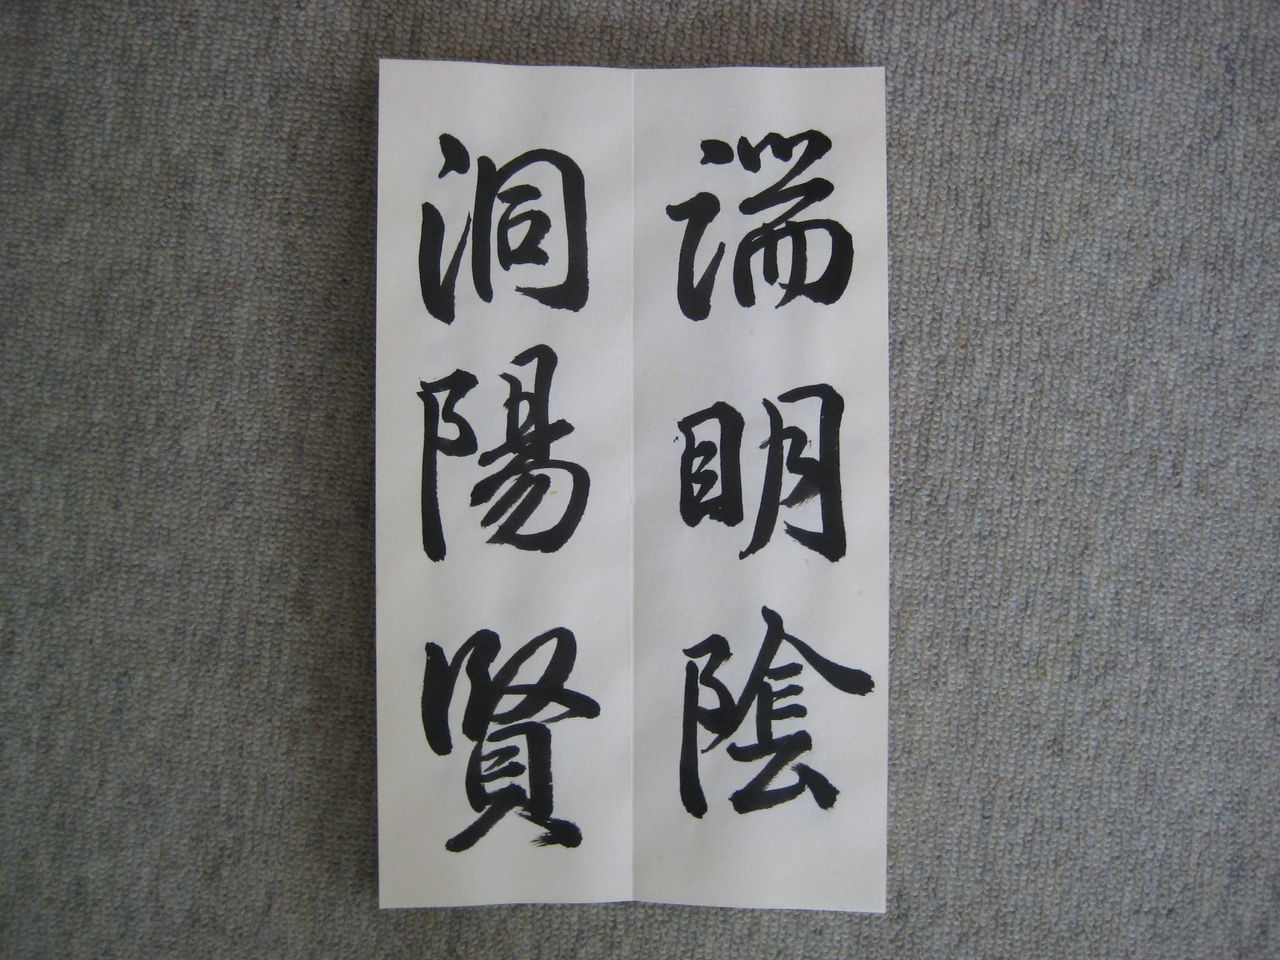 端明陰
洞陽賢